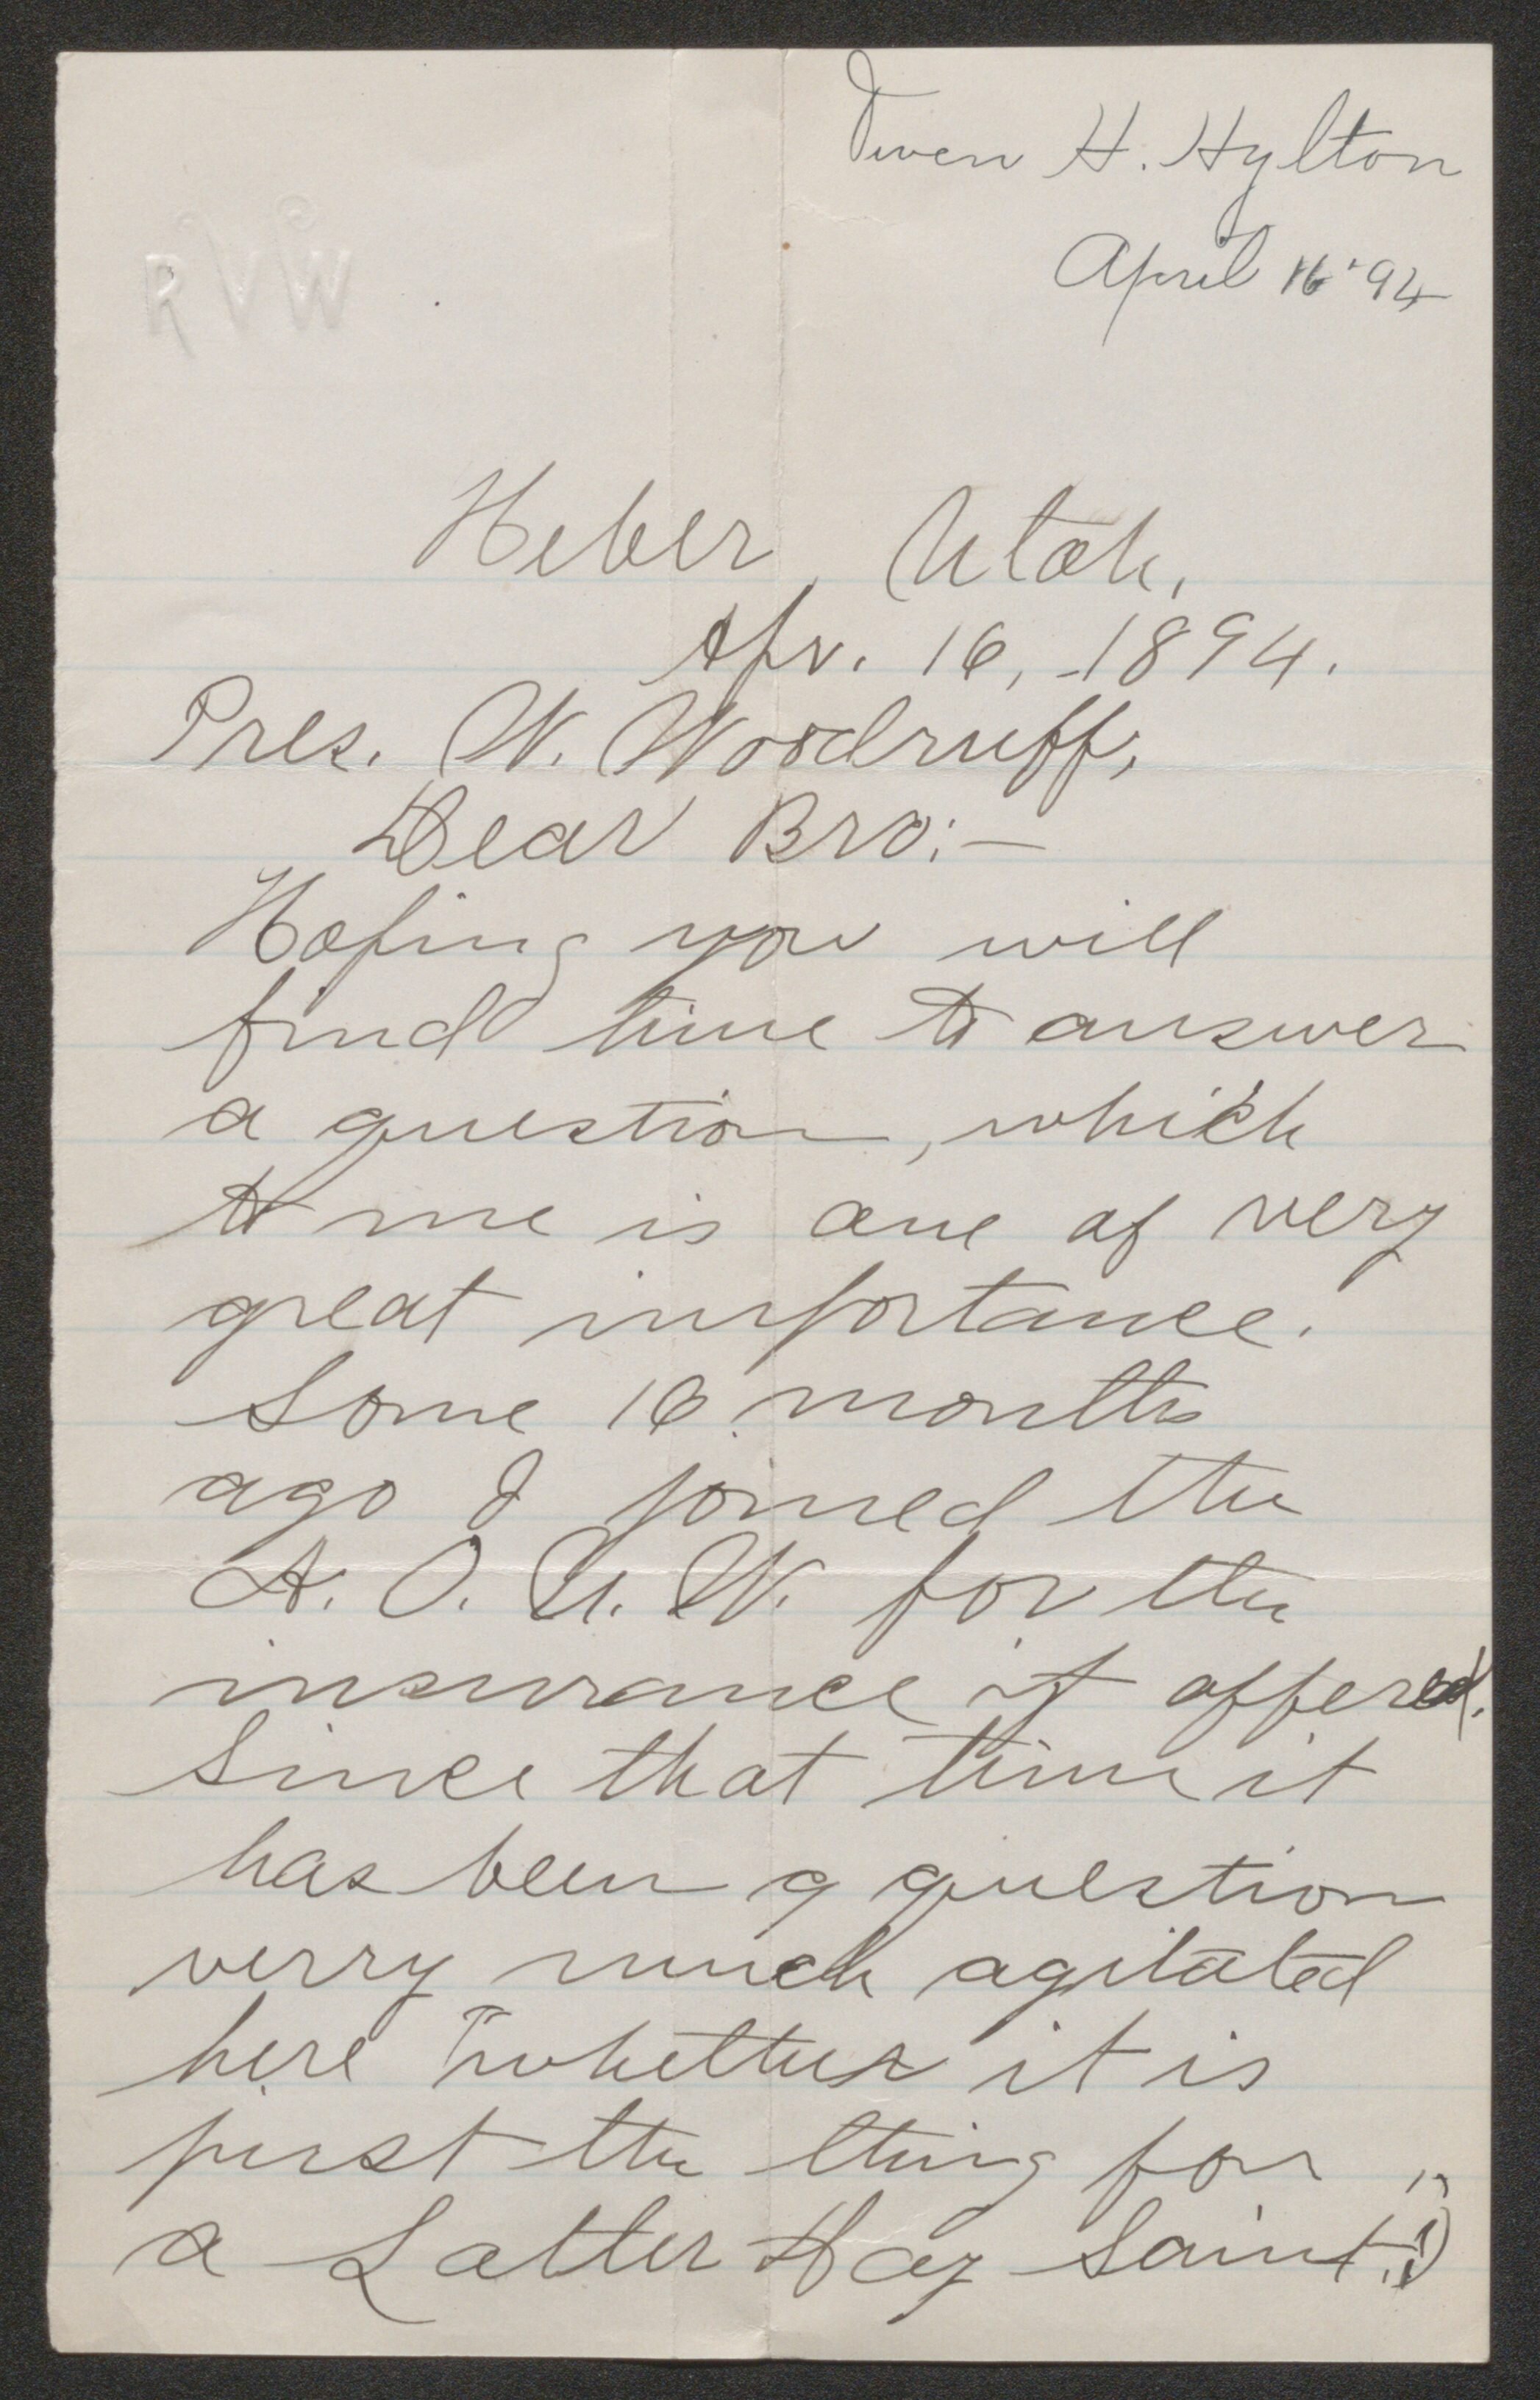 Owen H. Hylton
April 16 '94
RVW
Heber, Utah,
Apr. 16, 1894.
Pres. W. Woodruff,
Dear Bro:—
Hoping you will
find time to answer
a question, which
to me is one of very
great importance.
Some 16 months
ago I joined the
A. O. U. W. for the
insurance it offered.
Since that time it
has been a question
verry much agitated
here "whether it is
just the thing for
a Latter Day Saint."